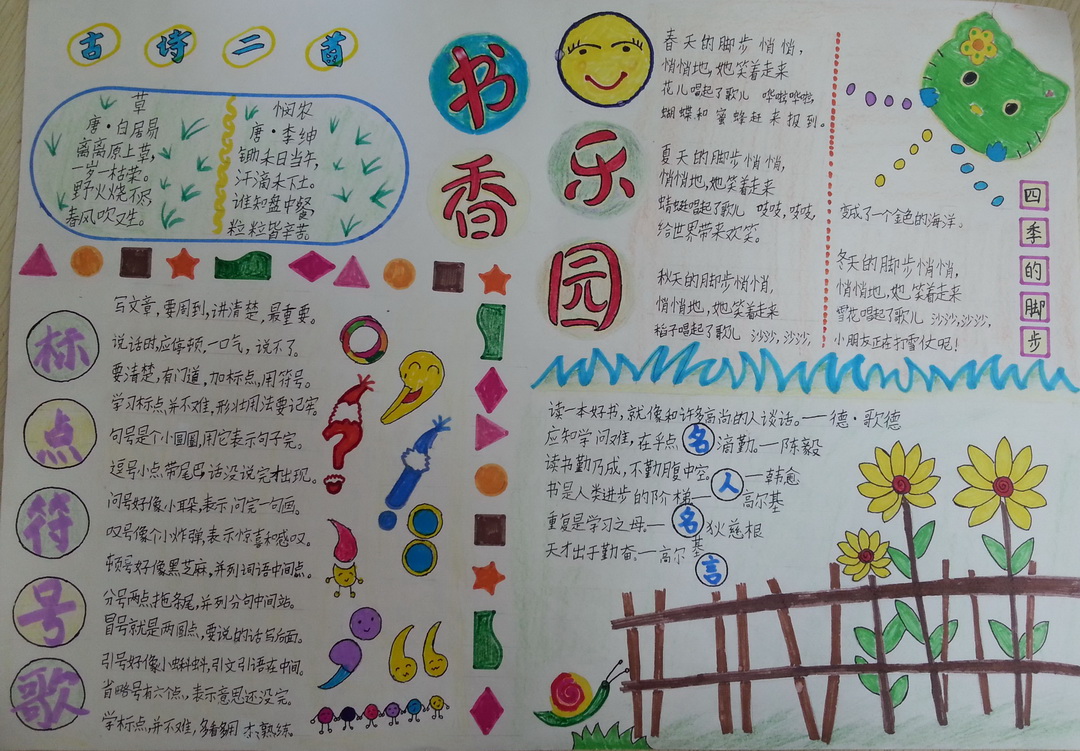 古诗二首
草
唐·白居易
离离原上草,
一岁一枯荣。
野火烧不尽,
春风吹又生。
悯农
唐·李绅
锄禾日当午,
汗滴禾下土。
谁知盘中餐
粒粒皆辛苦
书香乐园
标点符号歌
写文章,要周到,讲清楚,最重要。
说话时应停顿,一口气,说不了。
要清楚,有门道,加标点,用符号。
学习标点,并不难,形状用法要记牢。
句号是个小圆圈,用它表示句子完。
逗号小点带尾巴话没说完才出现。
问号好像小耳朵,表示问完一句画。
叹号像个小炸弹,表示惊喜和感叹。
顿号好像黑芝麻,并列词语中间点。
分号两点拖条尾,并列分句中间站。
冒号就是两圆点,要说的话写后面。
引号好像小蝌蚪,引文引语在中间。
省略号有六个点,表示意思还没完。
学标点,并不难,多看多用才熟练。
春天的脚步悄悄,
悄悄地,她笑着走来
花儿唱起了歌儿 哗啦哗啦,
蝴蝶和蜜蜂赶来报到。
夏天的脚步悄悄,
悄悄地,她笑着走来
蜻蜓唱起了歌儿 吱吱,吱吱,
给世界带来欢笑。
秋天的脚步悄悄,
悄悄地,她笑着走来
稻子唱起了歌儿 沙沙,沙沙,
变成了一个金色的海洋。
冬天的脚步悄悄,
悄悄地,她笑着走来
雪花唱起了歌儿 沙沙,沙沙,
小朋友正在打雪仗呢!
四季的脚步
读一本好书,就像和许多高尚的人谈话。—德·歌德
应知学问难,在乎点滴勤。—陈毅
读书勤乃成,不勤腹中空。—韩愈
书是人类进步的阶梯—高尔基
重复是学习之母—狄慈根
天才出于勤奋—高尔基
名人名言